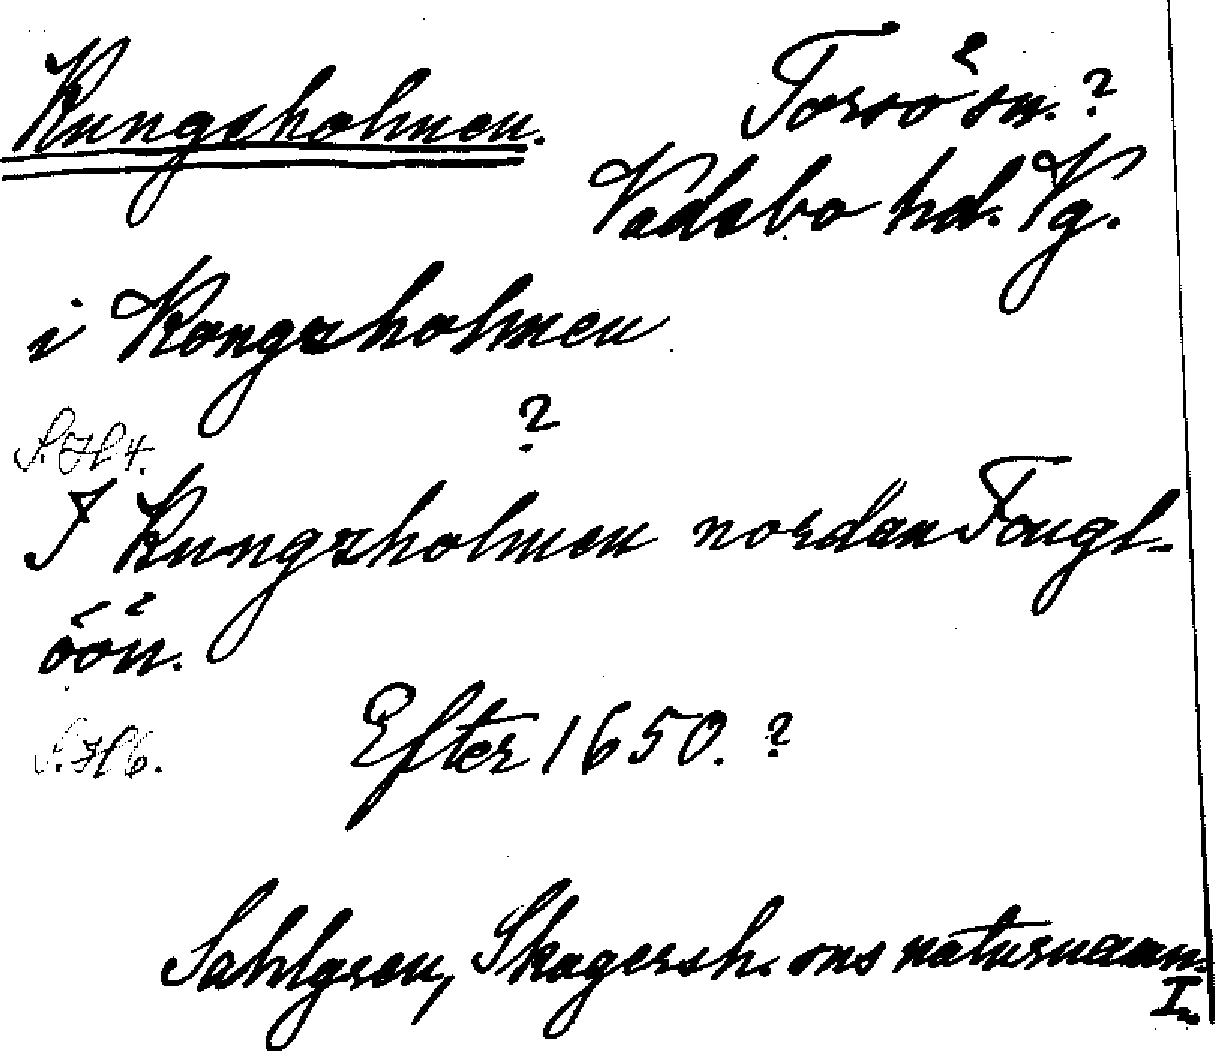 Kungsholmen.
Torsö sn. ?
Vadsbo hd. Vg.
i Kongzholmen
?
S. H 4.
I Kungzholmen nordan Fougl-
öön.
S. H 6.
Efter 1650. ?
Sahlgren, Skagersh. ons naturnamn.
I.